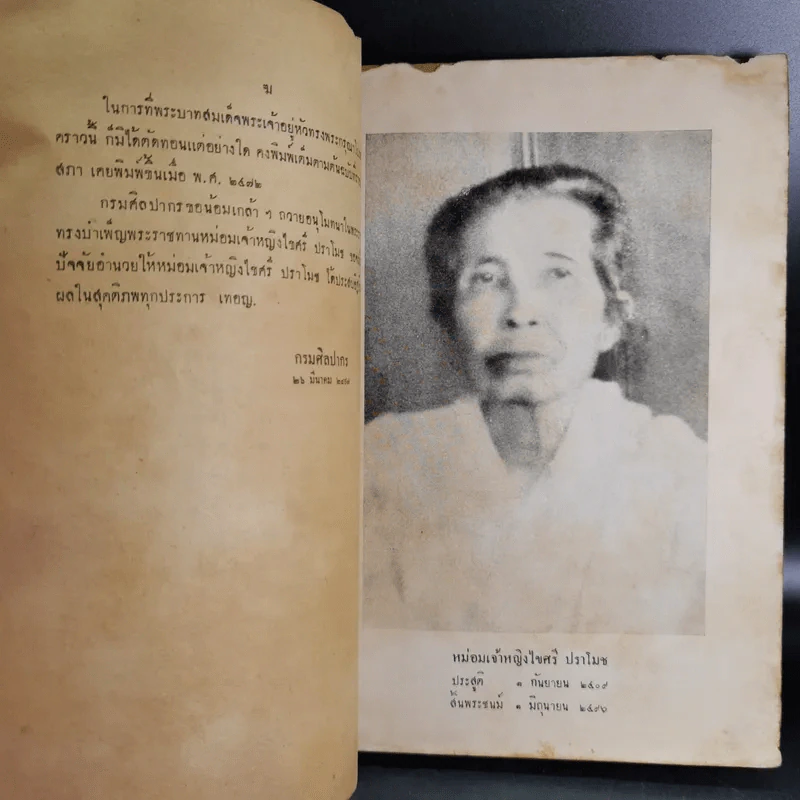 ฆ
ในการที่พระบาทสมเด็จพระเจ้าอยู่หัวทรงพระกรุณา
คราวนี้ ก็มิได้ตัดทอนแต่อย่างใด คงพิมพ์เต็มตามต้นฉบับ
สภา เคยพิมพ์ขึ้นเมื่อ พ.ศ. ๒๔๗๒
กรมศิลปากรขอน้อมเกล้า ฯ ถวายอนุโมทนาใน
ทรงบำเพ็ญพระราชทานหม่อมเจ้าหญิงไขศรี ปราโมช
ปัจจัยอำนวยให้หม่อมเจ้าหญิงไขศรี ปราโมช ได้ประสบ
ผลในสุคติภพทุกประการ เทอญ.
กรมศิลปากร
๒๖ มีนาคม
หม่อมเจ้าหญิงไขศรี ปราโมช
ประสูติ ๑ กันยายน ๒๔๐๙
สิ้นพระชนม์ ๑ มิถุนายน ๒๔๙๖